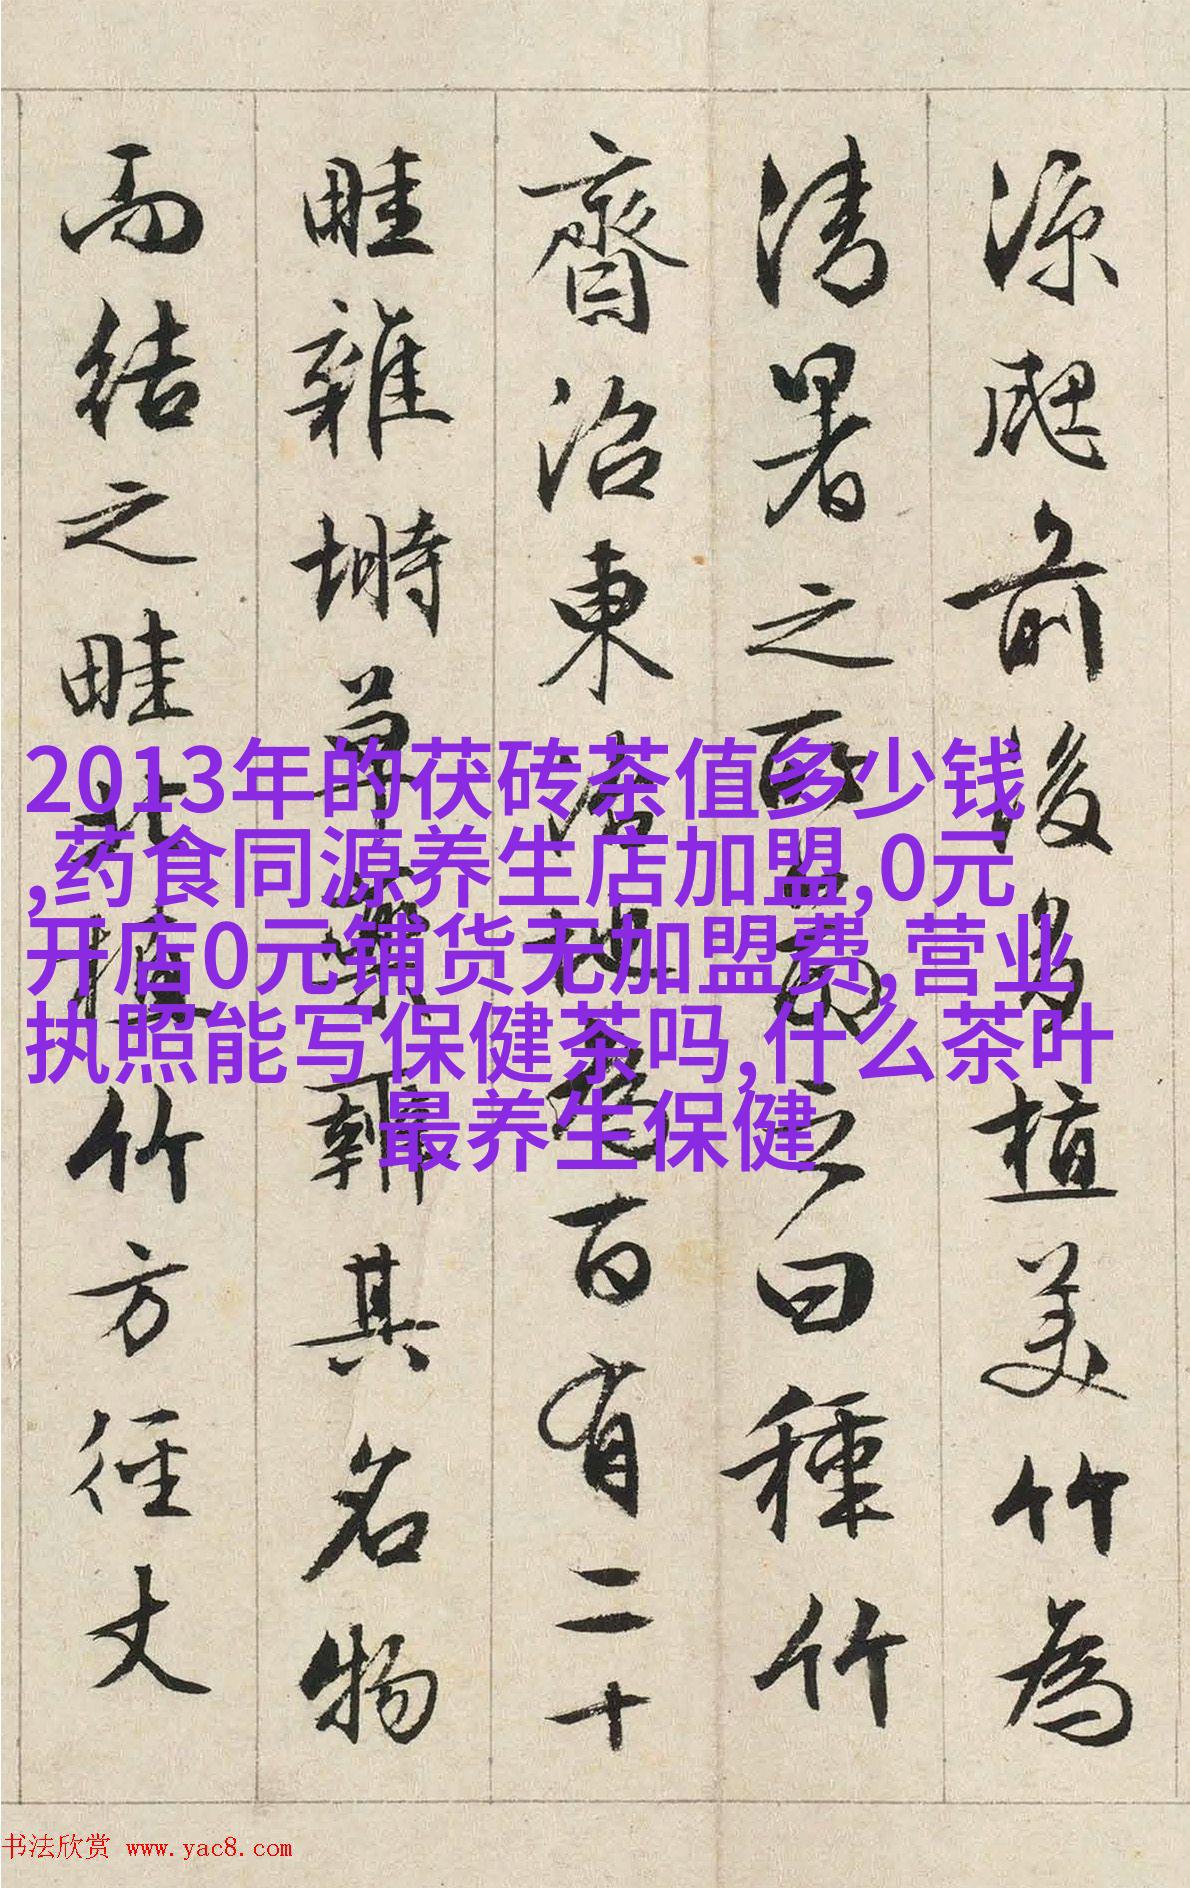 涼颸前後多植美竹為
清暑之所命之曰種竹
齋沼東治地為百有二十
畦雜塒草藥辨其名物
而結之畦北植竹方徑丈
2013年的茯砖茶值多少钱
,药食同源养生店加盟,0元
开店0元铺货无加盟费,营业
执照能写保健茶吗,什么茶叶
最养生保健
书法欣赏 www.yac8.com